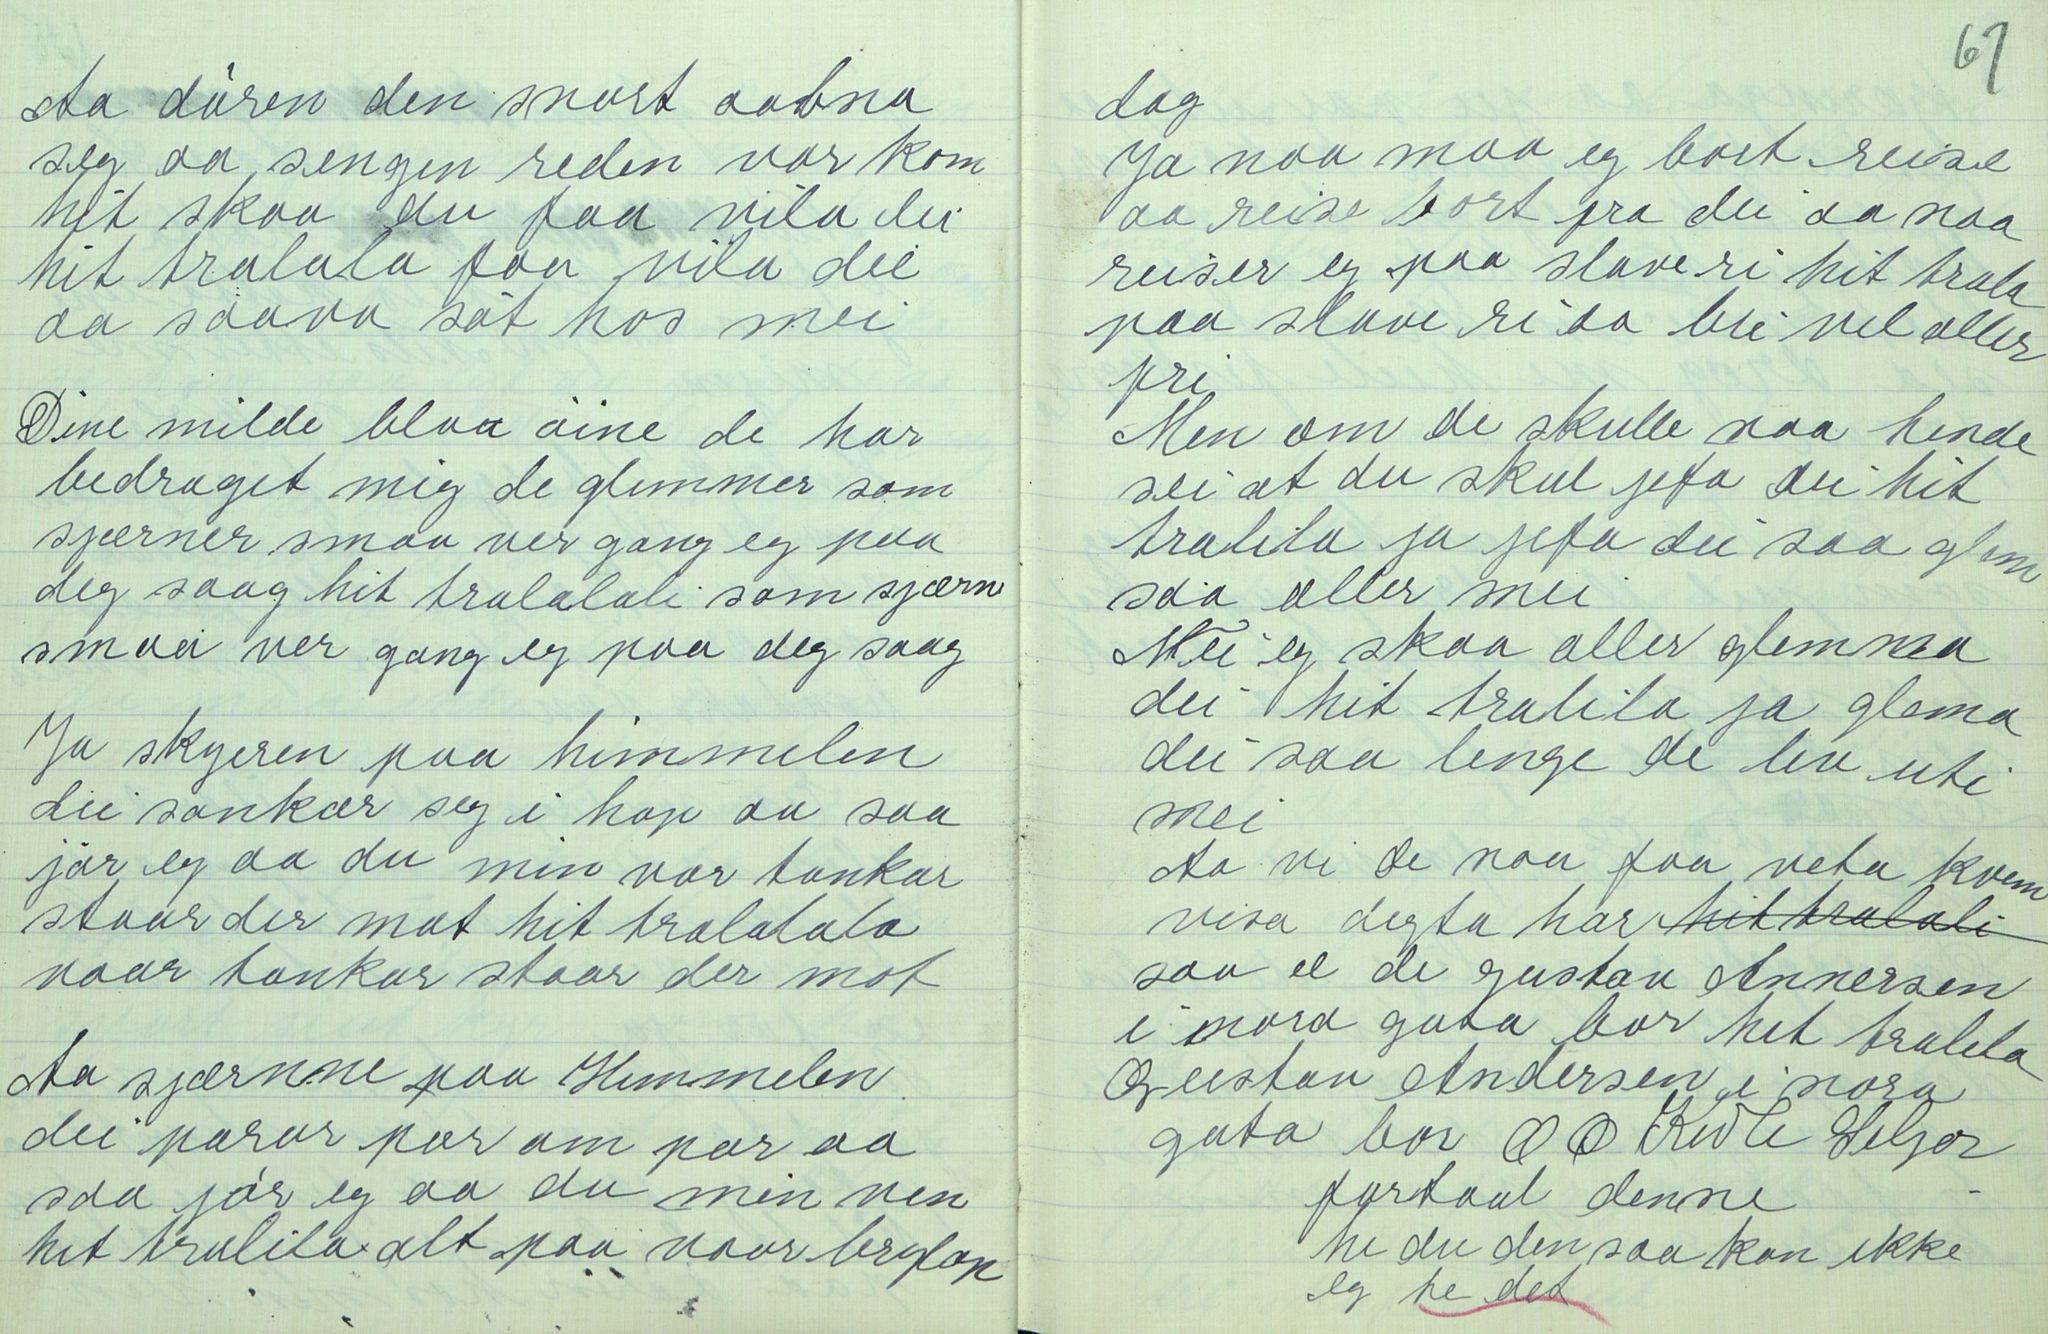 Aa dören den snart aabna
seg aa sengen reden var kom
hit skaa du faa vila dei
hit tralala faa vila dei
aa saava söt hos mei
Dine milde blaa öine de har
bedraget mig de glemmer som
sjærner smaa ver gang eg paa
deg saag hit tralalali som sjærn
smaa ver gang eg paa deg saag
Ja skyeren paa himmelen
dei sankar seg i hop aa saa
jör eg aa du min var tankar
staar der mot hit tralalala
vaar tankar staar der mot
Aa sjærnne paa Himmelen
dei parar par om par aa
saa jör eg aa du min ven
hit tralila alt paa vaar bryfap
67
dag
Ja naa maa eg bort reise
aa reise bort fra dei aa naa
reiser eg paa slaveri hit trala
paa slaveri aa bli vel aller
fri
Men om de skulle naa hende
sei at du skul jefa dei hit
tralila ja jefa dei saa glem
saa aller mei
Nei eg skaa aller glemma
dei hit tralila ja glema
dei saa lenge de liv uti
mei
Aa vi de naa faa veta kvem
visa digta har hit tralali
saa e de gustav Annersen
i nora gata bor hit tralila
Gustav Andersen i nora
gata bor Seljor
fortaal denne
he du den saa kan ikke
eg he det